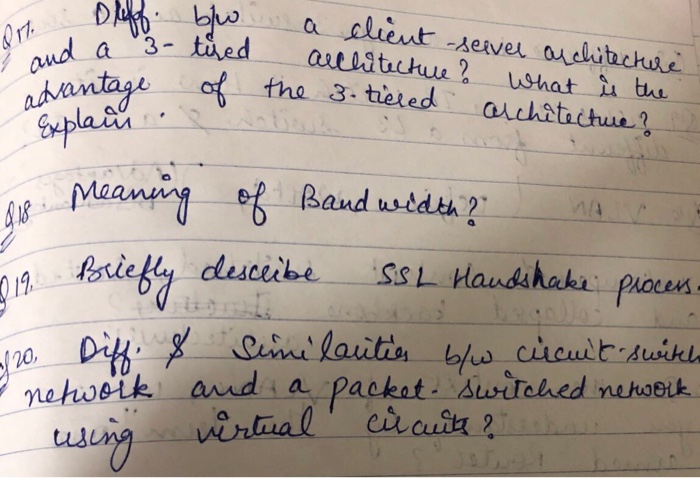 Q17. Diff. b/w a client-server architecture
and a 3-tired architecture? What is the
advantage of the 3-tiered architecture?
Explain.
Q18 Meaning of Bandwidth?
Q19. Briefly describe SSL Handshake process.
Q20. Diff. & Similarities b/w circuit-switch
network and a packet-switched network
using virtual circuits?